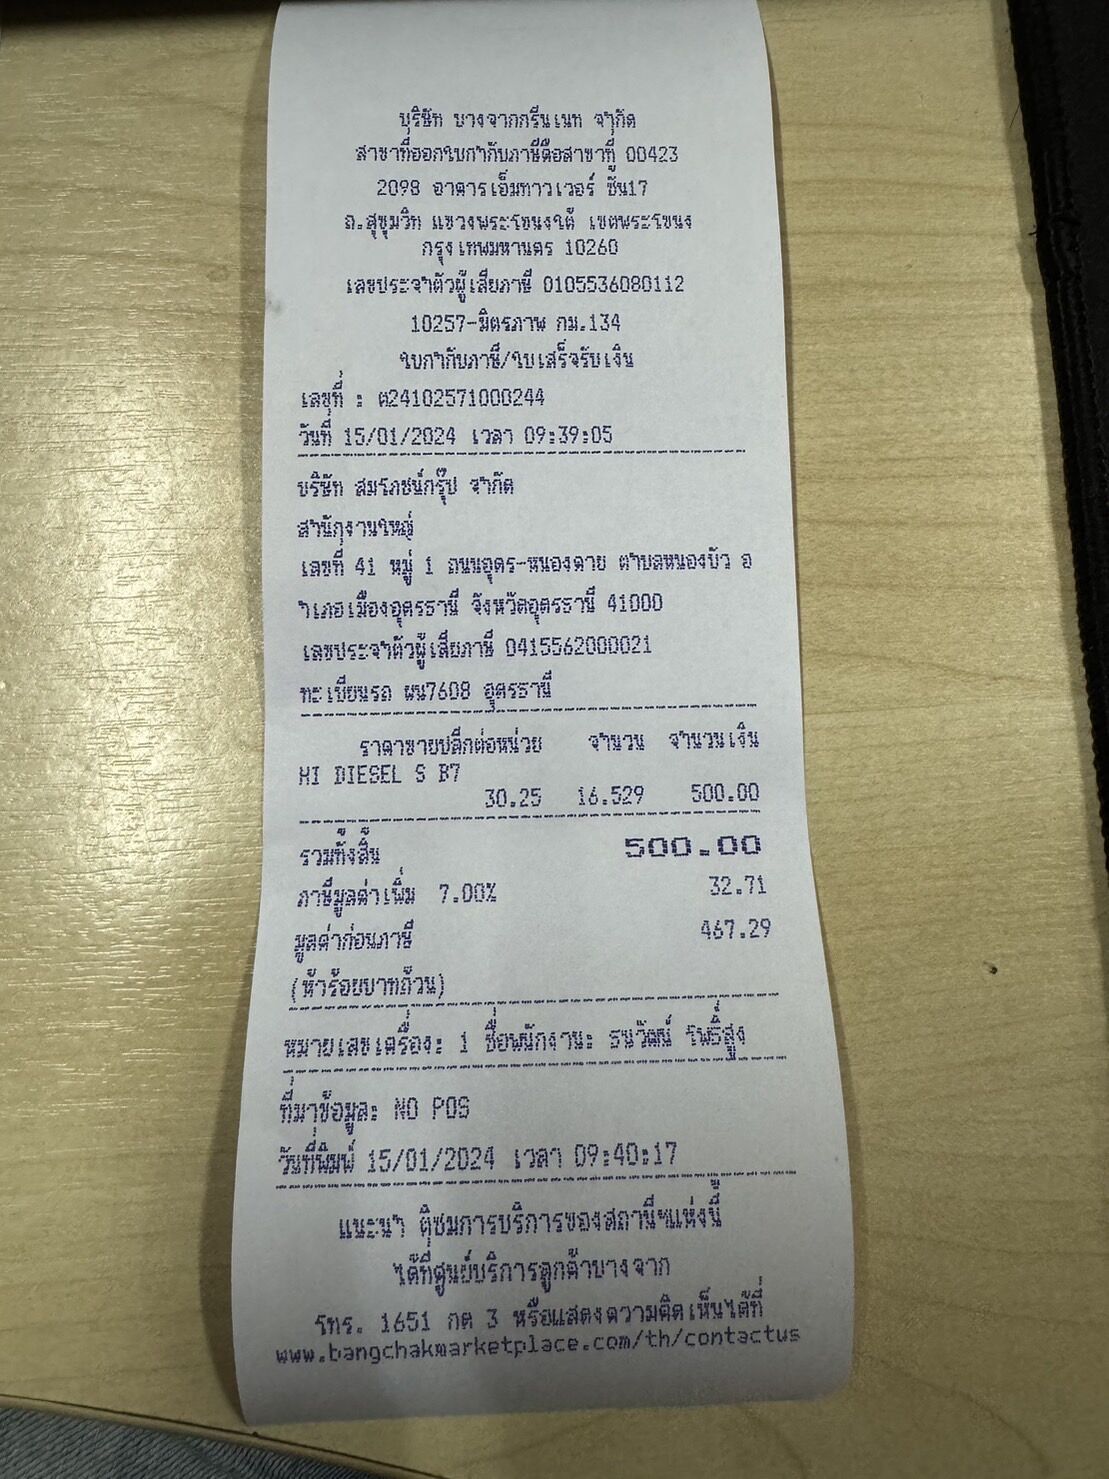 บริษัท บางจากกรีนเนท จำกัด
สาขาที่ออกใบกำกับภาษีคือสาขาที่ 00423
2098 อาคารเอ็มทาวเวอร์ ชั้น17
ถ.สุขุมวิท แขวงพระโขนงใต้ เขตพระโขนง
กรุงเทพมหานคร 10260
เลขประจำตัวผู้เสียภาษี 0105536080112
10257-มิตรภาพ กม.134
ใบกำกับภาษี/ใบเสร็จรับเงิน
เลขที่ : ต24102571000244
วันที่ 15/01/2024 เวลา 09:39:05
บริษัท สมโภชน์กรุ๊ป จำกัด
สำนักงานใหญ่
เลขที่ 41 หมู่ 1 ถนนอุดร-หนองคาย ตำบลหนองบัว อ
ำเภอเมืองอุดรธานี จังหวัดอุดรธานี 41000
เลขประจำตัวผู้เสียภาษี 0415562000021
ทะเบียนรถ ผน7608 อุดรธานี
ราคาขายปลีกต่อหน่วย จำนวน จำนวนเงิน
HI DIESEL S B7
30.25 16.529 500.00
รวมทั้งสิ้น 500.00
ภาษีมูลค่าเพิ่ม 7.00% 32.71
มูลค่าก่อนภาษี 467.29
(ห้าร้อยบาทถ้วน)
หมายเลขเครื่อง: 1 ชื่อพนักงาน: ธนวัฒน์ โพธิ์สูง
ที่มาข้อมูล: NO POS
วันที่พิมพ์ 15/01/2024 เวลา 09:40:17
แนะนำ ติชมการบริการของสถานีฯแห่งนี้
ได้ที่ศูนย์บริการลูกค้าบางจาก
โทร. 1651 กด 3 หรือแสดงความคิดเห็นได้ที่
www.bangchakmarketplace.com/th/contactus